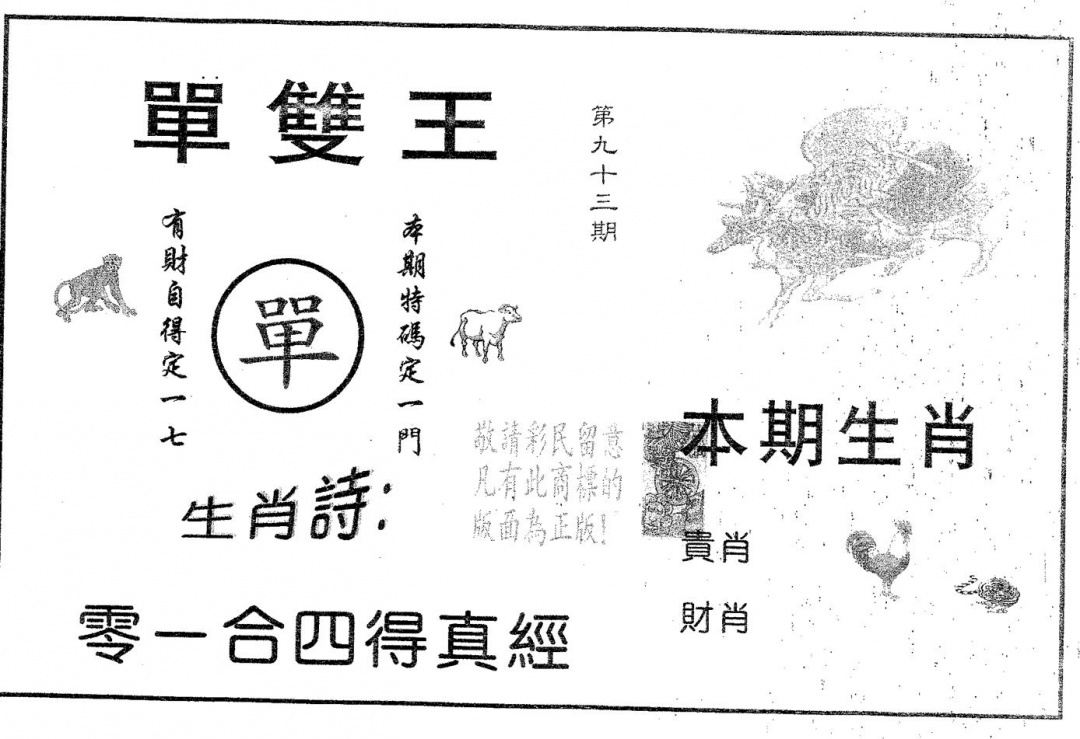 單雙王
第九十三期
本期特碼定一門
單
有財自得定一七
生肖詩:
零一合四得真經
敬請彩民留意
凡有此商標的
版面為正版!
本期生肖
貴肖
財肖